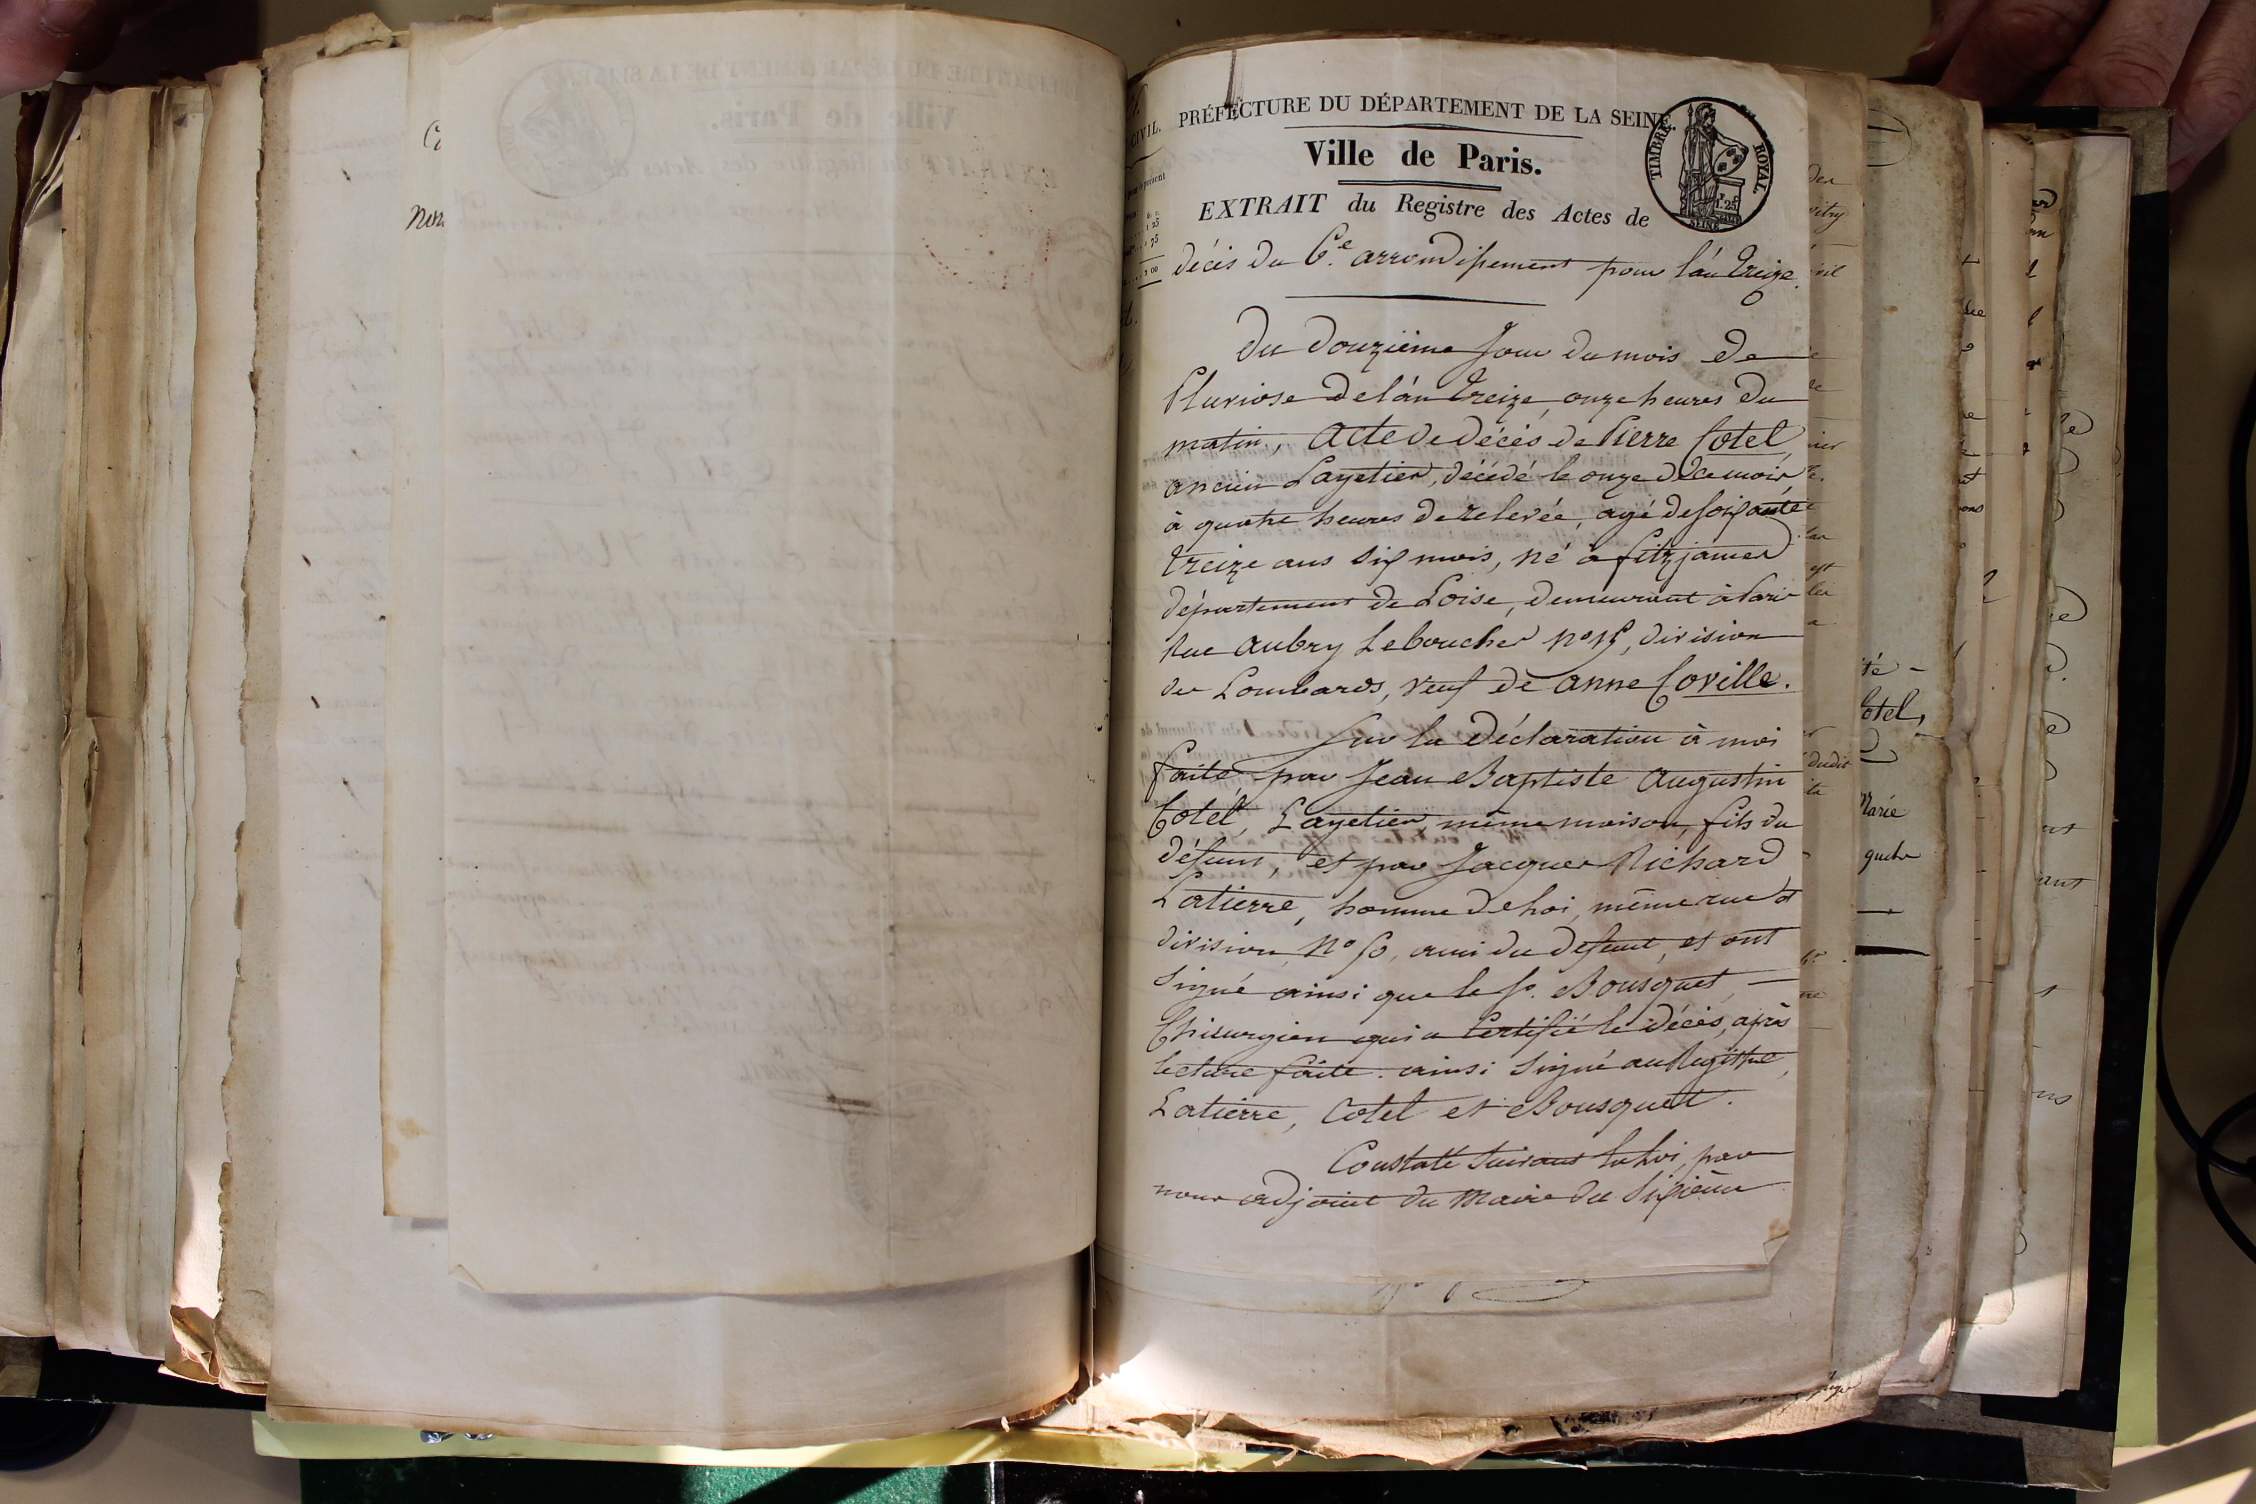 PRÉFECTURE DU DÉPARTEMENT DE LA SEINE.
Ville de Paris.
TIMBRE ROYAL.
SEINE
EXTRAIT du Registre des Actes de
décès du 6.e arrondissement pour l'an treize.
Du Douzième Jour du mois de
Pluviose de l'an treize, onze heures du
matin, acte de décès de Pierre Cotel,
ancien Layetier, décédé le onze de ce mois
à quatre heures de relevée, agé de soixante
treize ans six mois, né à fitzjames
département de L'oise, demeurant à Paris
Rue aubry Leboucher n° 15, division
des Lombards, veuf de anne Coville.
Sur la Déclaration à moi
faite par Jean Baptiste Augustin
Cotel, Layetier même maison, fils du
défunt, et par Jacques Richard
Latierre, homme de loi, même rue et
division, N° 50, ami du defunt, et ont
Signé ainsi que le S.r Bousquet
Chirurgien qui a Certifié le Décès, après
lecture faite. ainsi Signé au Registre,
Latierre, Cotel et Bousquet.
Constaté Suivant la Loi, par
nous adjoint du Maire du Sixième
CIVIL.
otel,
dudit
Marie